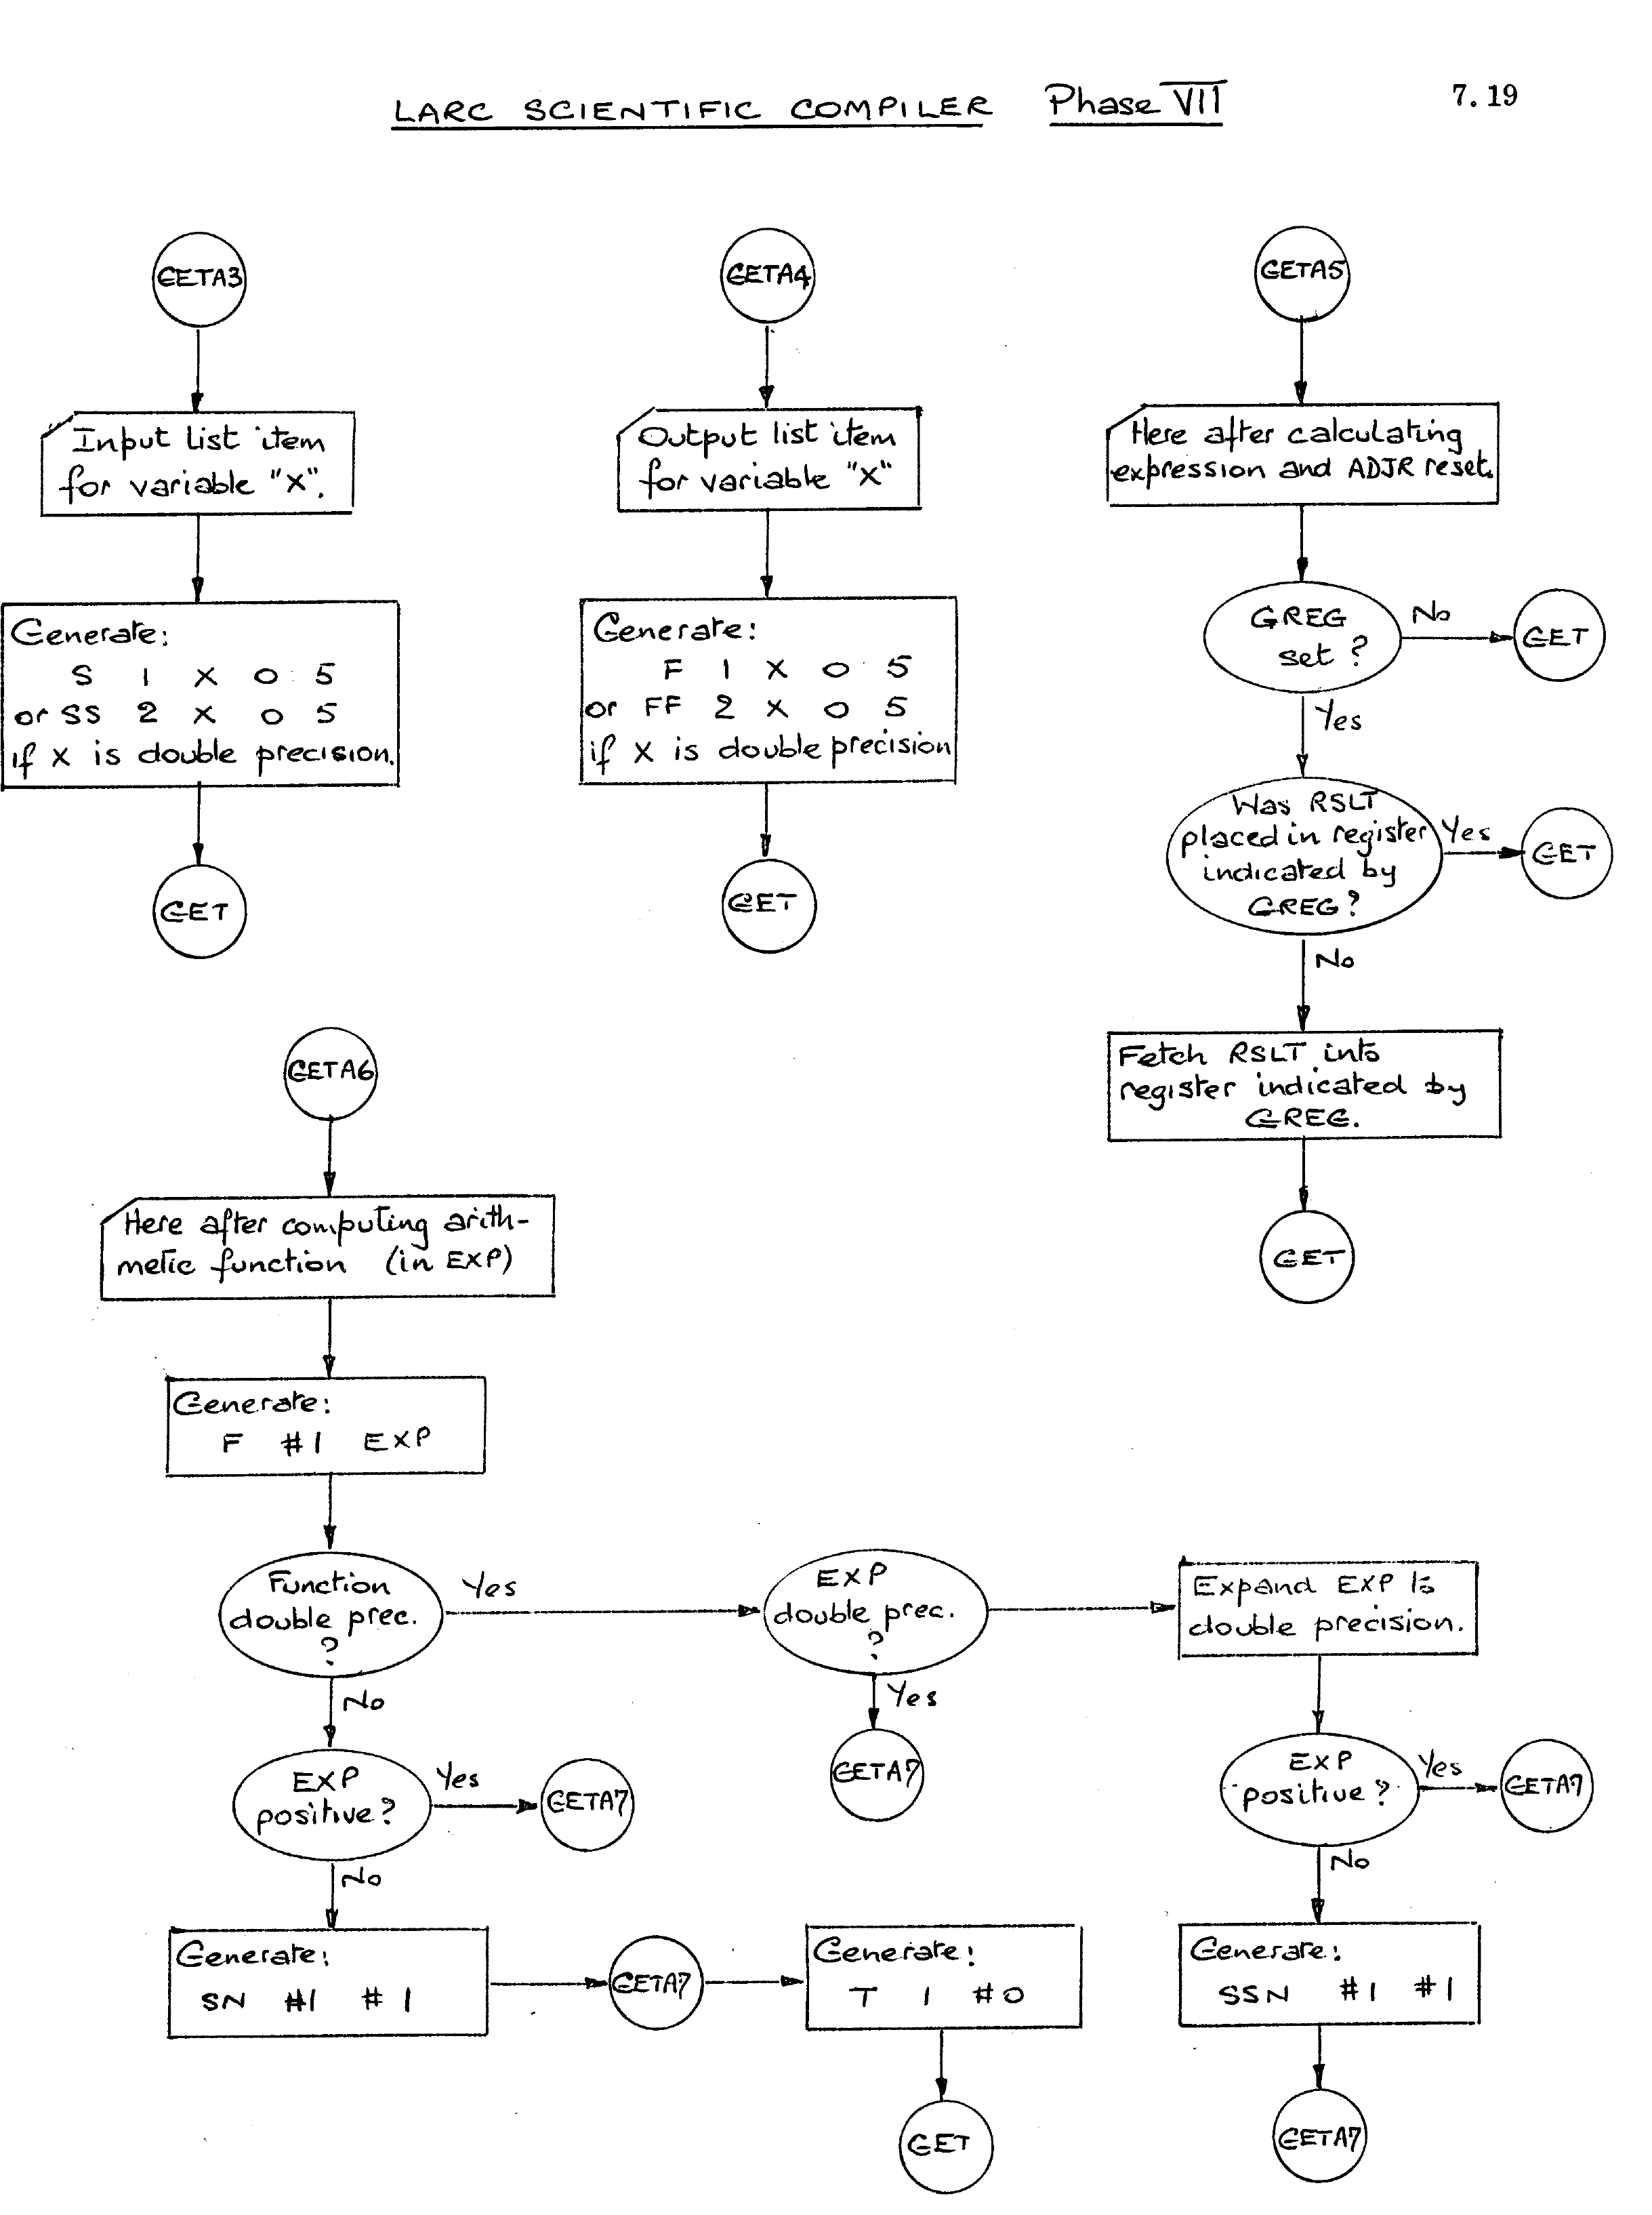 LARC SCIENTIFIC COMPILER Phase VII 7.19
GETA3
Input list item
for variable "X".
Generate:
S 1 X 0 5
or SS 2 X 0 5
if X is double precision.
GET
GETA4
Output list item
for variable "X"
Generate:
F 1 X 0 5
or FF 2 X 0 5
if X is double precision
GET
GETA5
Here after calculating
expression and ADJR reset.
GREG
set?
No
GET
Yes
Was RSLT
placed in register
indicated by
GREG?
Yes
GET
No
Fetch RSLT into
register indicated by
GREG.
GET
GETA6
Here after computing arith-
metic function (in EXP)
Generate:
F #1 EXP
Function
double prec.
?
Yes
EXP
double prec.
?
Yes
GETA7
Expand EXP to
double precision.
EXP
positive?
Yes
GETA7
No
Generate:
SSN #1 #1
GETA7
No
EXP
positive?
Yes
GETA7
No
Generate:
SN #1 #1
GETA7
Generate:
T 1 #0
GET